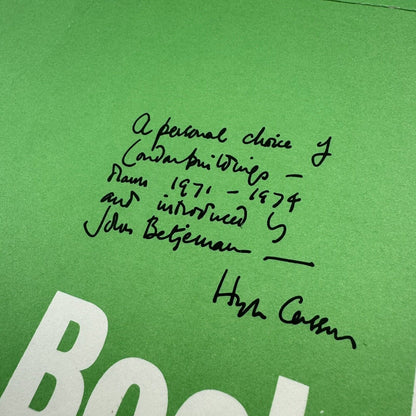 A personal choice of
London buildings —
drawn 1971 - 1974
and introduced by
John Betjeman —
Hugh Casson
Book